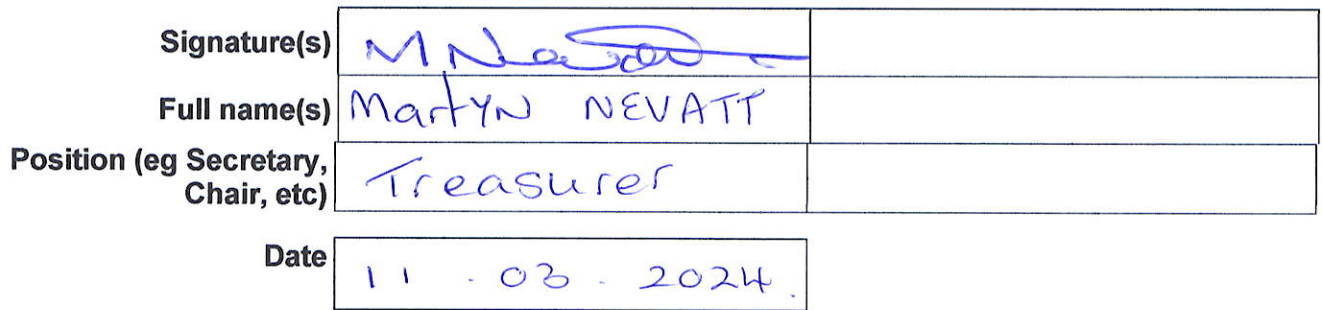 Signature(s) M Nevatt
Full name(s) Martyn NEVATT
Position (eg Secretary, Treasurer
Chair, etc)
Date 11 . 03 . 2024.